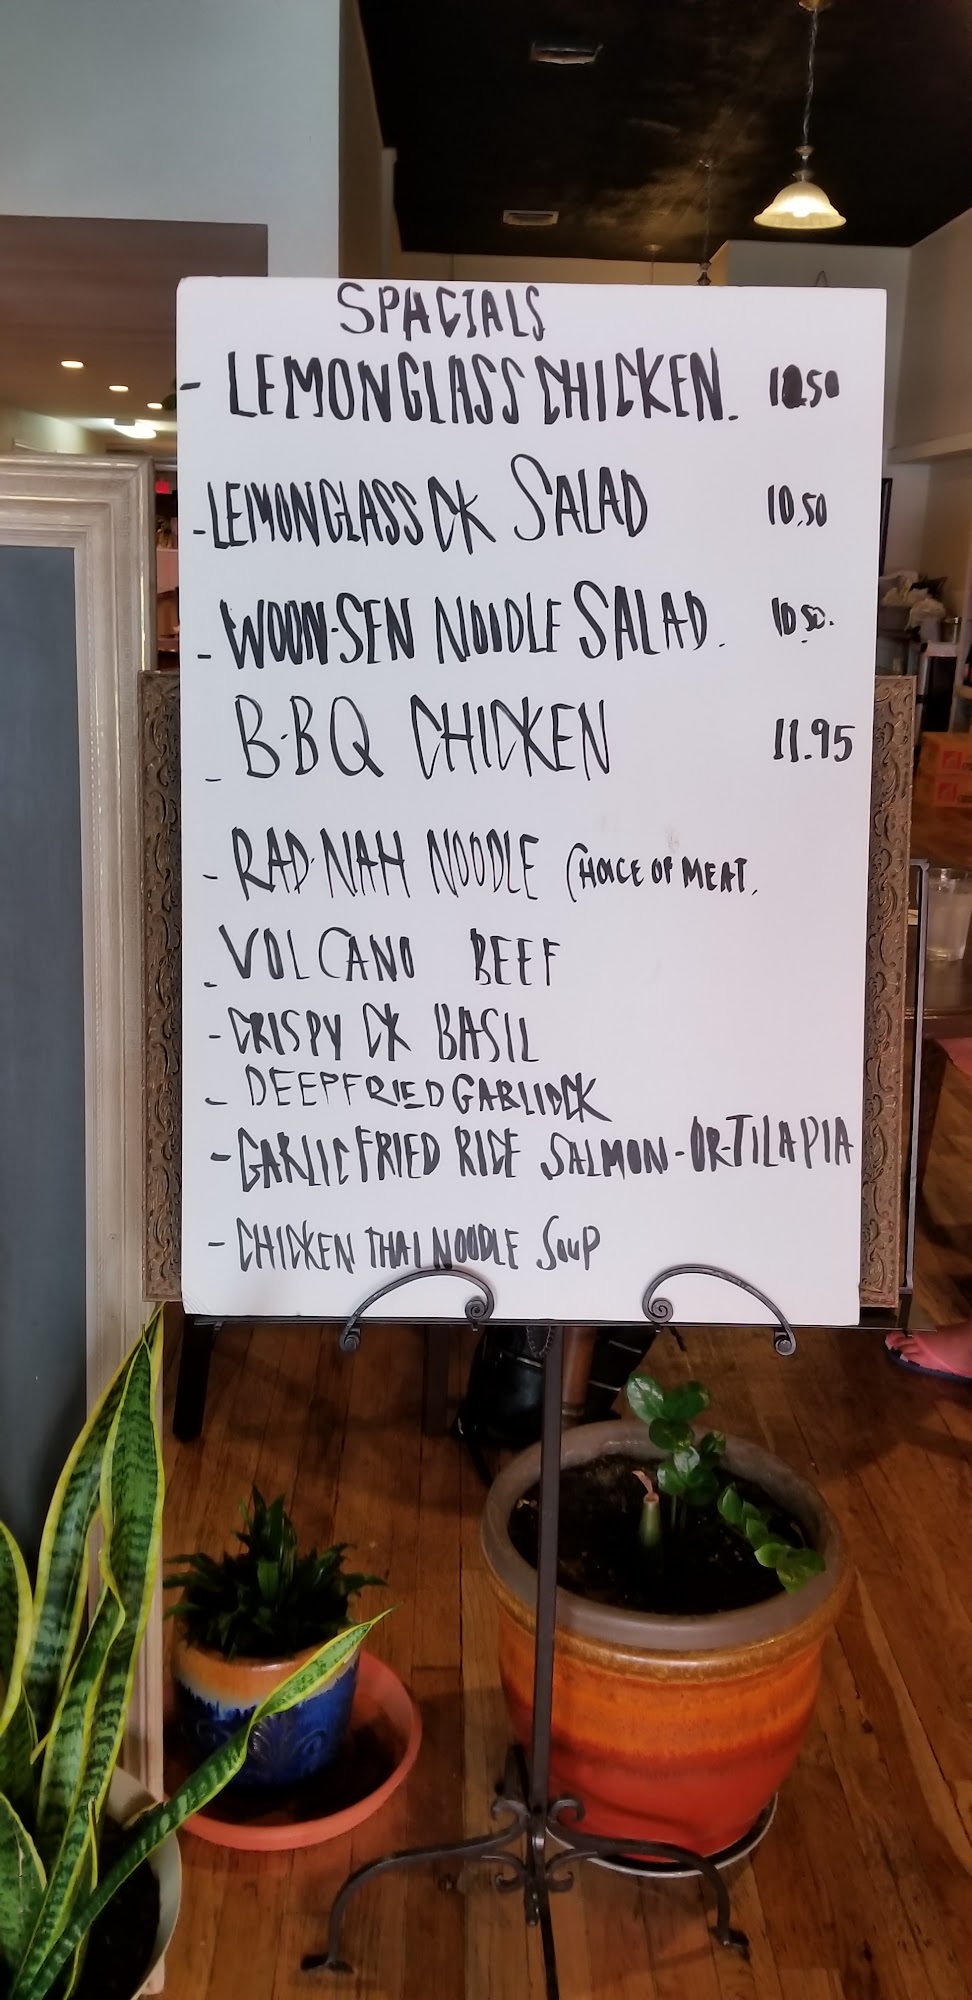 SPACIALS
- LEMONGLASS CHICKEN. 12.50
- LEMONGLASS CK SALAD 10.50
- WOON-SEN NOODLE SALAD. 10.50.
- B-BQ CHICKEN 11.95
- RAD-NAH NOODLE CHOICE OF MEAT.
- VOLCANO BEEF
- CRISPY CK BASIL
- DEEPFRIED GARLIC CK
- GARLIC FRIED RICE SALMON-OR-TILAPIA
- CHICKEN THAI NOODLE SOUP